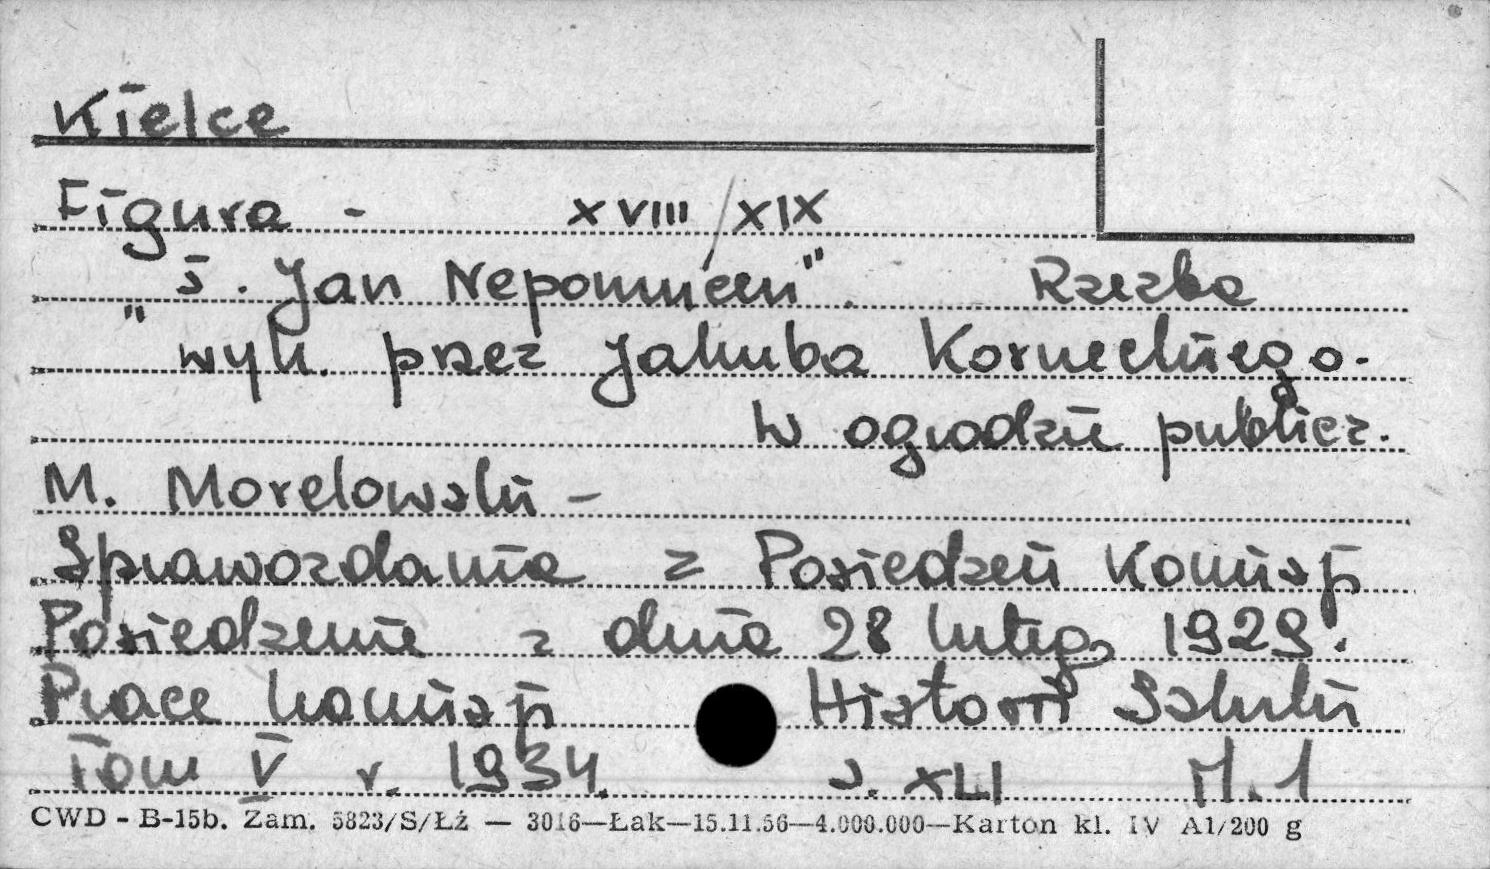 Kielce
Figura - XVIII/XIX
"Ś. Jan Nepomucen". Rzeźba
wyk. przez Jakuba Korneckiego.
w ogrodzie publicz.
M. Morelowski -
Sprawozdania z Posiedzeń Komisji
Posiedzenie z dnia 28 lutego 1929.
Prace Komisji Historii Sztuki
Tom V r. 1934. s. XLI M.1
CWD - B-15b. Zam. 5823/S/Łź — 3016—Łak—15.11.56—4.000.000—Karton kl. IV A1/200 g